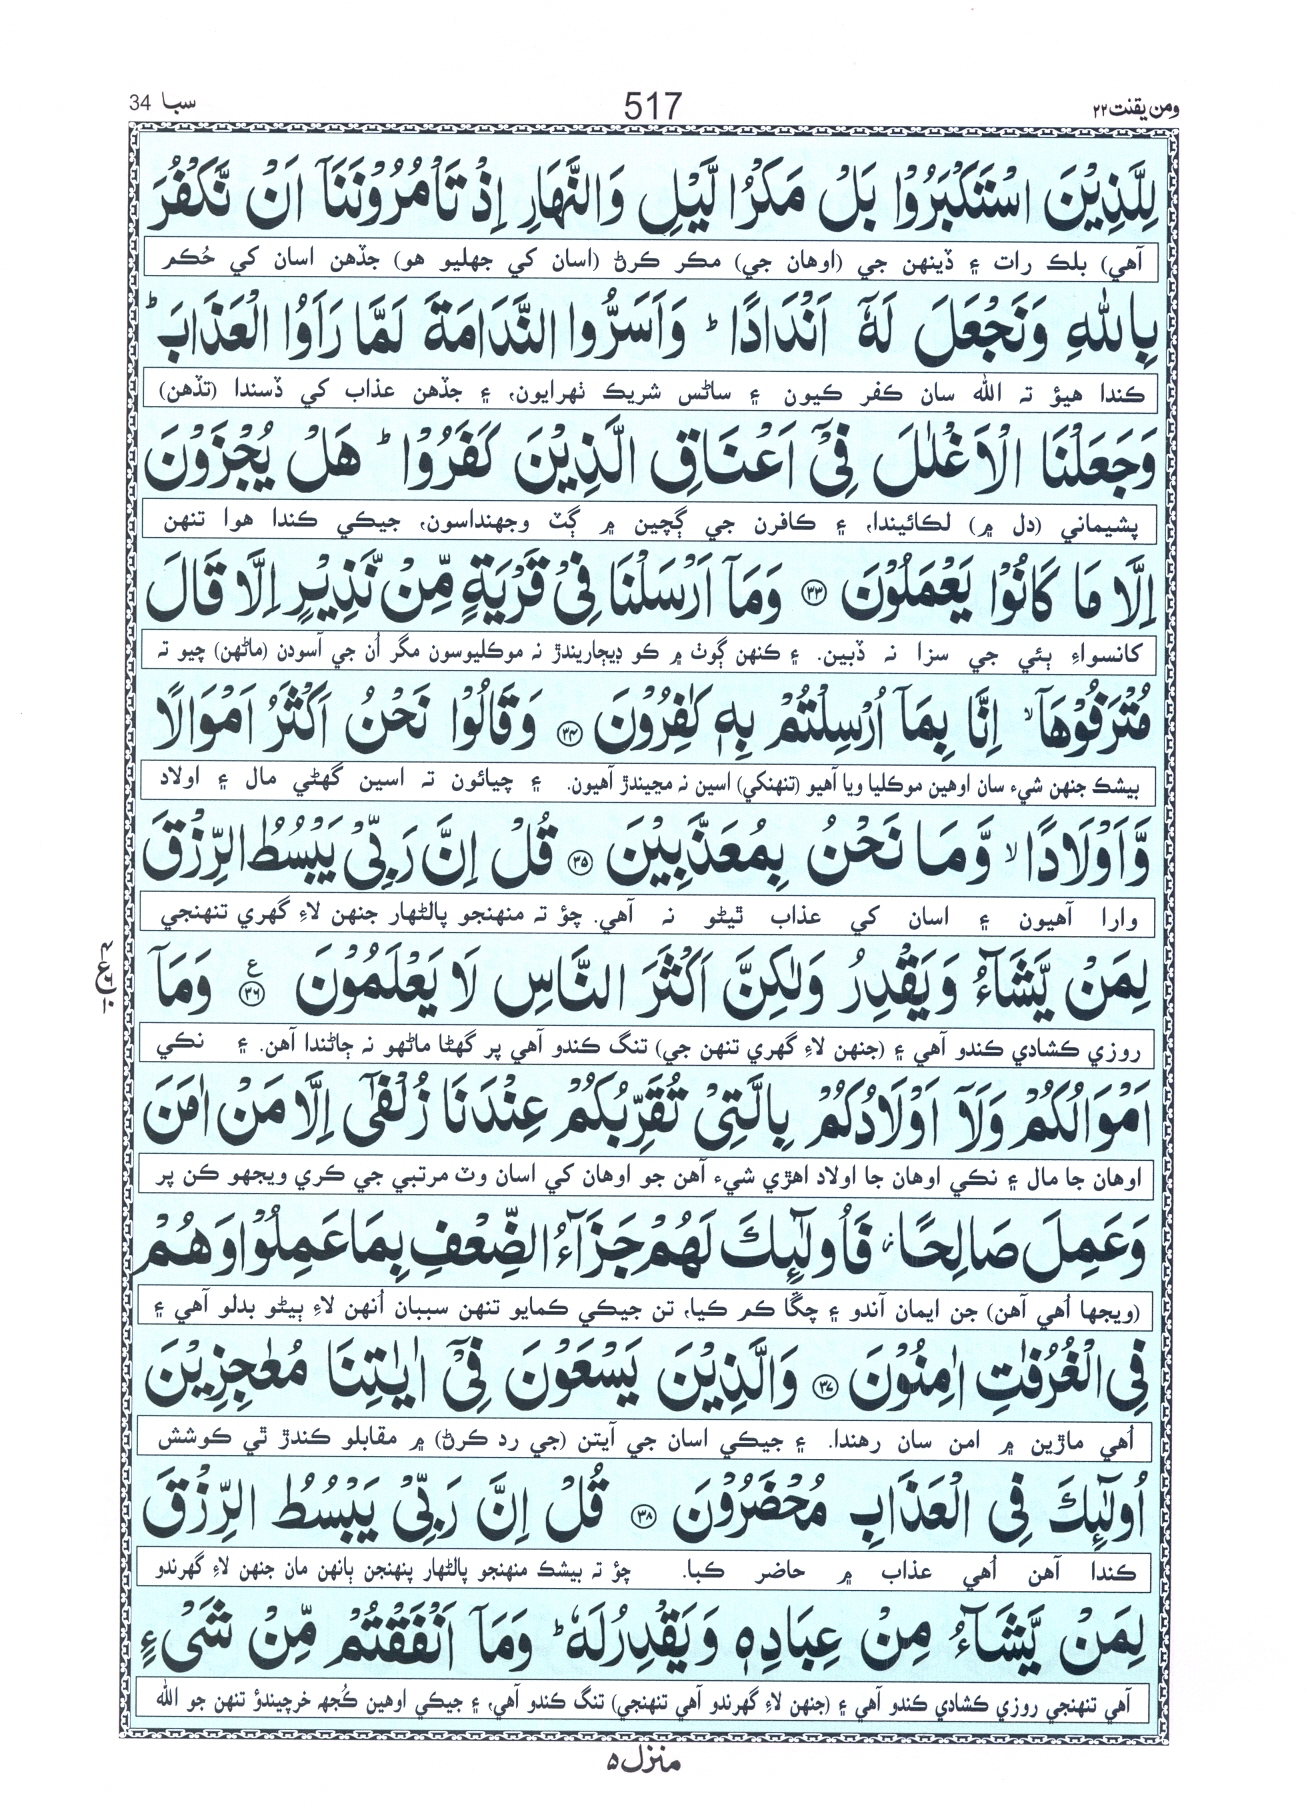 ومن يقنت ٢٢
517
سبا 34
لِلَّذِيْنَ اسْتَكْبَرُوْا بَلْ مَكْرُ الَّيْلِ وَالنَّهَارِ اِذْ تَاْمُرُوْنَنَآ اَنْ نَّكْفُرَ
آهي) بلڪ رات ۽ ڏينهن جي (اوهان جي) مڪر ڪرڻ (اسان کي جهليو هو) جڏهن اسان کي حُڪم
بِاللّٰهِ وَنَجْعَلَ لَهٗٓ اَنْدَادًا ؕ وَاَسَرُّوا النَّدَامَةَ لَمَّا رَاَوُا الْعَذَابَ ؕ
ڪندا هيؤ تہ الله سان ڪفر ڪيون ۽ ساڻس شريڪ ٺهرايون، ۽ جڏهن عذاب کي ڏسندا (تڏهن)
وَجَعَلْنَا الْاَغْلٰلَ فِيْٓ اَعْنَاقِ الَّذِيْنَ كَفَرُوْا ؕ هَلْ يُجْزَوْنَ
پشيماني (دل ۾) لڪائيندا، ۽ ڪافرن جي ڳچين ۾ ڳٽ وجهنداسون، جيڪي ڪندا هوا تنهن
اِلَّا مَا كَانُوْا يَعْمَلُوْنَ ﴿٣٣﴾ وَمَآ اَرْسَلْنَا فِيْ قَرْيَةٍ مِّنْ نَّذِيْرٍ اِلَّا قَالَ
کانسواءِ ٻئي جي سزا نہ ڏبين. ۽ ڪنهن ڳوٺ ۾ ڪو ڊيڄاريندڙ نہ موڪليوسون مگر اُن جي آسودن (ماڻهن) چيو تہ
مُتْرَفُوْهَآ ۙ اِنَّا بِمَآ اُرْسِلْتُمْ بِهٖ كٰفِرُوْنَ ﴿٣٤﴾ وَقَالُوْا نَحْنُ اَكْثَرُ اَمْوَالًا
بيشڪ جنهن شيءِ سان اوهين موڪليا ويا آهيو (تنهنکي) اسين نہ مڃيندڙ آهيون. ۽ چيائون تہ اسين گهڻي مال ۽ اولاد
وَّاَوْلَادًا ۙ وَّمَا نَحْنُ بِمُعَذَّبِيْنَ ﴿٣٥﴾ قُلْ اِنَّ رَبِّيْ يَبْسُطُ الرِّزْقَ
وارا آهيون ۽ اسان کي عذاب ٿيڻو نہ آهي. چؤ تہ منهنجو پالڻهار جنهن لاءِ گهري تنهنجي
لِمَنْ يَّشَآءُ وَيَقْدِرُ وَلٰكِنَّ اَكْثَرَ النَّاسِ لَا يَعْلَمُوْنَ ﴿٣٦﴾ ع وَمَآ
روزي ڪشادي ڪندو آهي ۽ (جنهن لاءِ گهري تنهن جي) تنگ ڪندو آهي پر گهڻا ماڻهو نہ ڄاڻندا آهن. ۽ نڪي
اَمْوَالُكُمْ وَلَآ اَوْلَادُكُمْ بِالَّتِيْ تُقَرِّبُكُمْ عِنْدَنَا زُلْفٰٓى اِلَّا مَنْ اٰمَنَ
اوهان جا مال ۽ نڪي اوهان جا اولاد اهڙي شيءِ آهن جو اوهان کي اسان وٽ مرتبي جي ڪري ويجهو ڪن پر
وَعَمِلَ صَالِحًا ۡ فَاُولٰٓئِكَ لَهُمْ جَزَآءُ الضِّعْفِ بِمَا عَمِلُوْا وَهُمْ
(ويجها اُهي آهن) جن ايمان آندو ۽ چڱا ڪم ڪيا، تن جيڪي ڪمايو تنهن سببان اُنهن لاءِ ٻيڻو بدلو آهي ۽
فِي الْغُرُفٰتِ اٰمِنُوْنَ ﴿٣٧﴾ وَالَّذِيْنَ يَسْعَوْنَ فِيْٓ اٰيٰتِنَا مُعٰجِزِيْنَ
اُهي ماڙين ۾ امن سان رهندا. ۽ جيڪي اسان جي آيتن (جي رد ڪرڻ) ۾ مقابلو ڪندڙ ٿي ڪوشش
اُولٰٓئِكَ فِي الْعَذَابِ مُحْضَرُوْنَ ﴿٣٨﴾ قُلْ اِنَّ رَبِّيْ يَبْسُطُ الرِّزْقَ
ڪندا آهن اُهي عذاب ۾ حاضر ڪبا. چؤ تہ بيشڪ منهنجو پالڻهار پنهنجن ٻانهن مان جنهن لاءِ گهرندو
لِمَنْ يَّشَآءُ مِنْ عِبَادِهٖ وَيَقْدِرُ لَهٗ ؕ وَمَآ اَنْفَقْتُمْ مِّنْ شَيْءٍ
آهي تنهنجي روزي ڪشادي ڪندو آهي ۽ (جنهن لاءِ گهرندو آهي تنهنجي) تنگ ڪندو آهي، ۽ جيڪي اوهين ڪُجهہ خرچيندؤ تنهن جو الله
منزل ٥